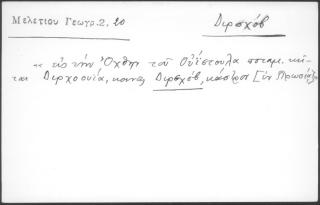 Μελετίου Γεωγρ.2, 20
Διρσχόβ
« εἰς τὴν Ὄχθην τοῦ Οὐϊστούλα ποταμ. κεῖ-
ται Διρχοουία, κοινῶς Διρσχόβ, κάστρον [ἐν Πρωσίᾳ]»